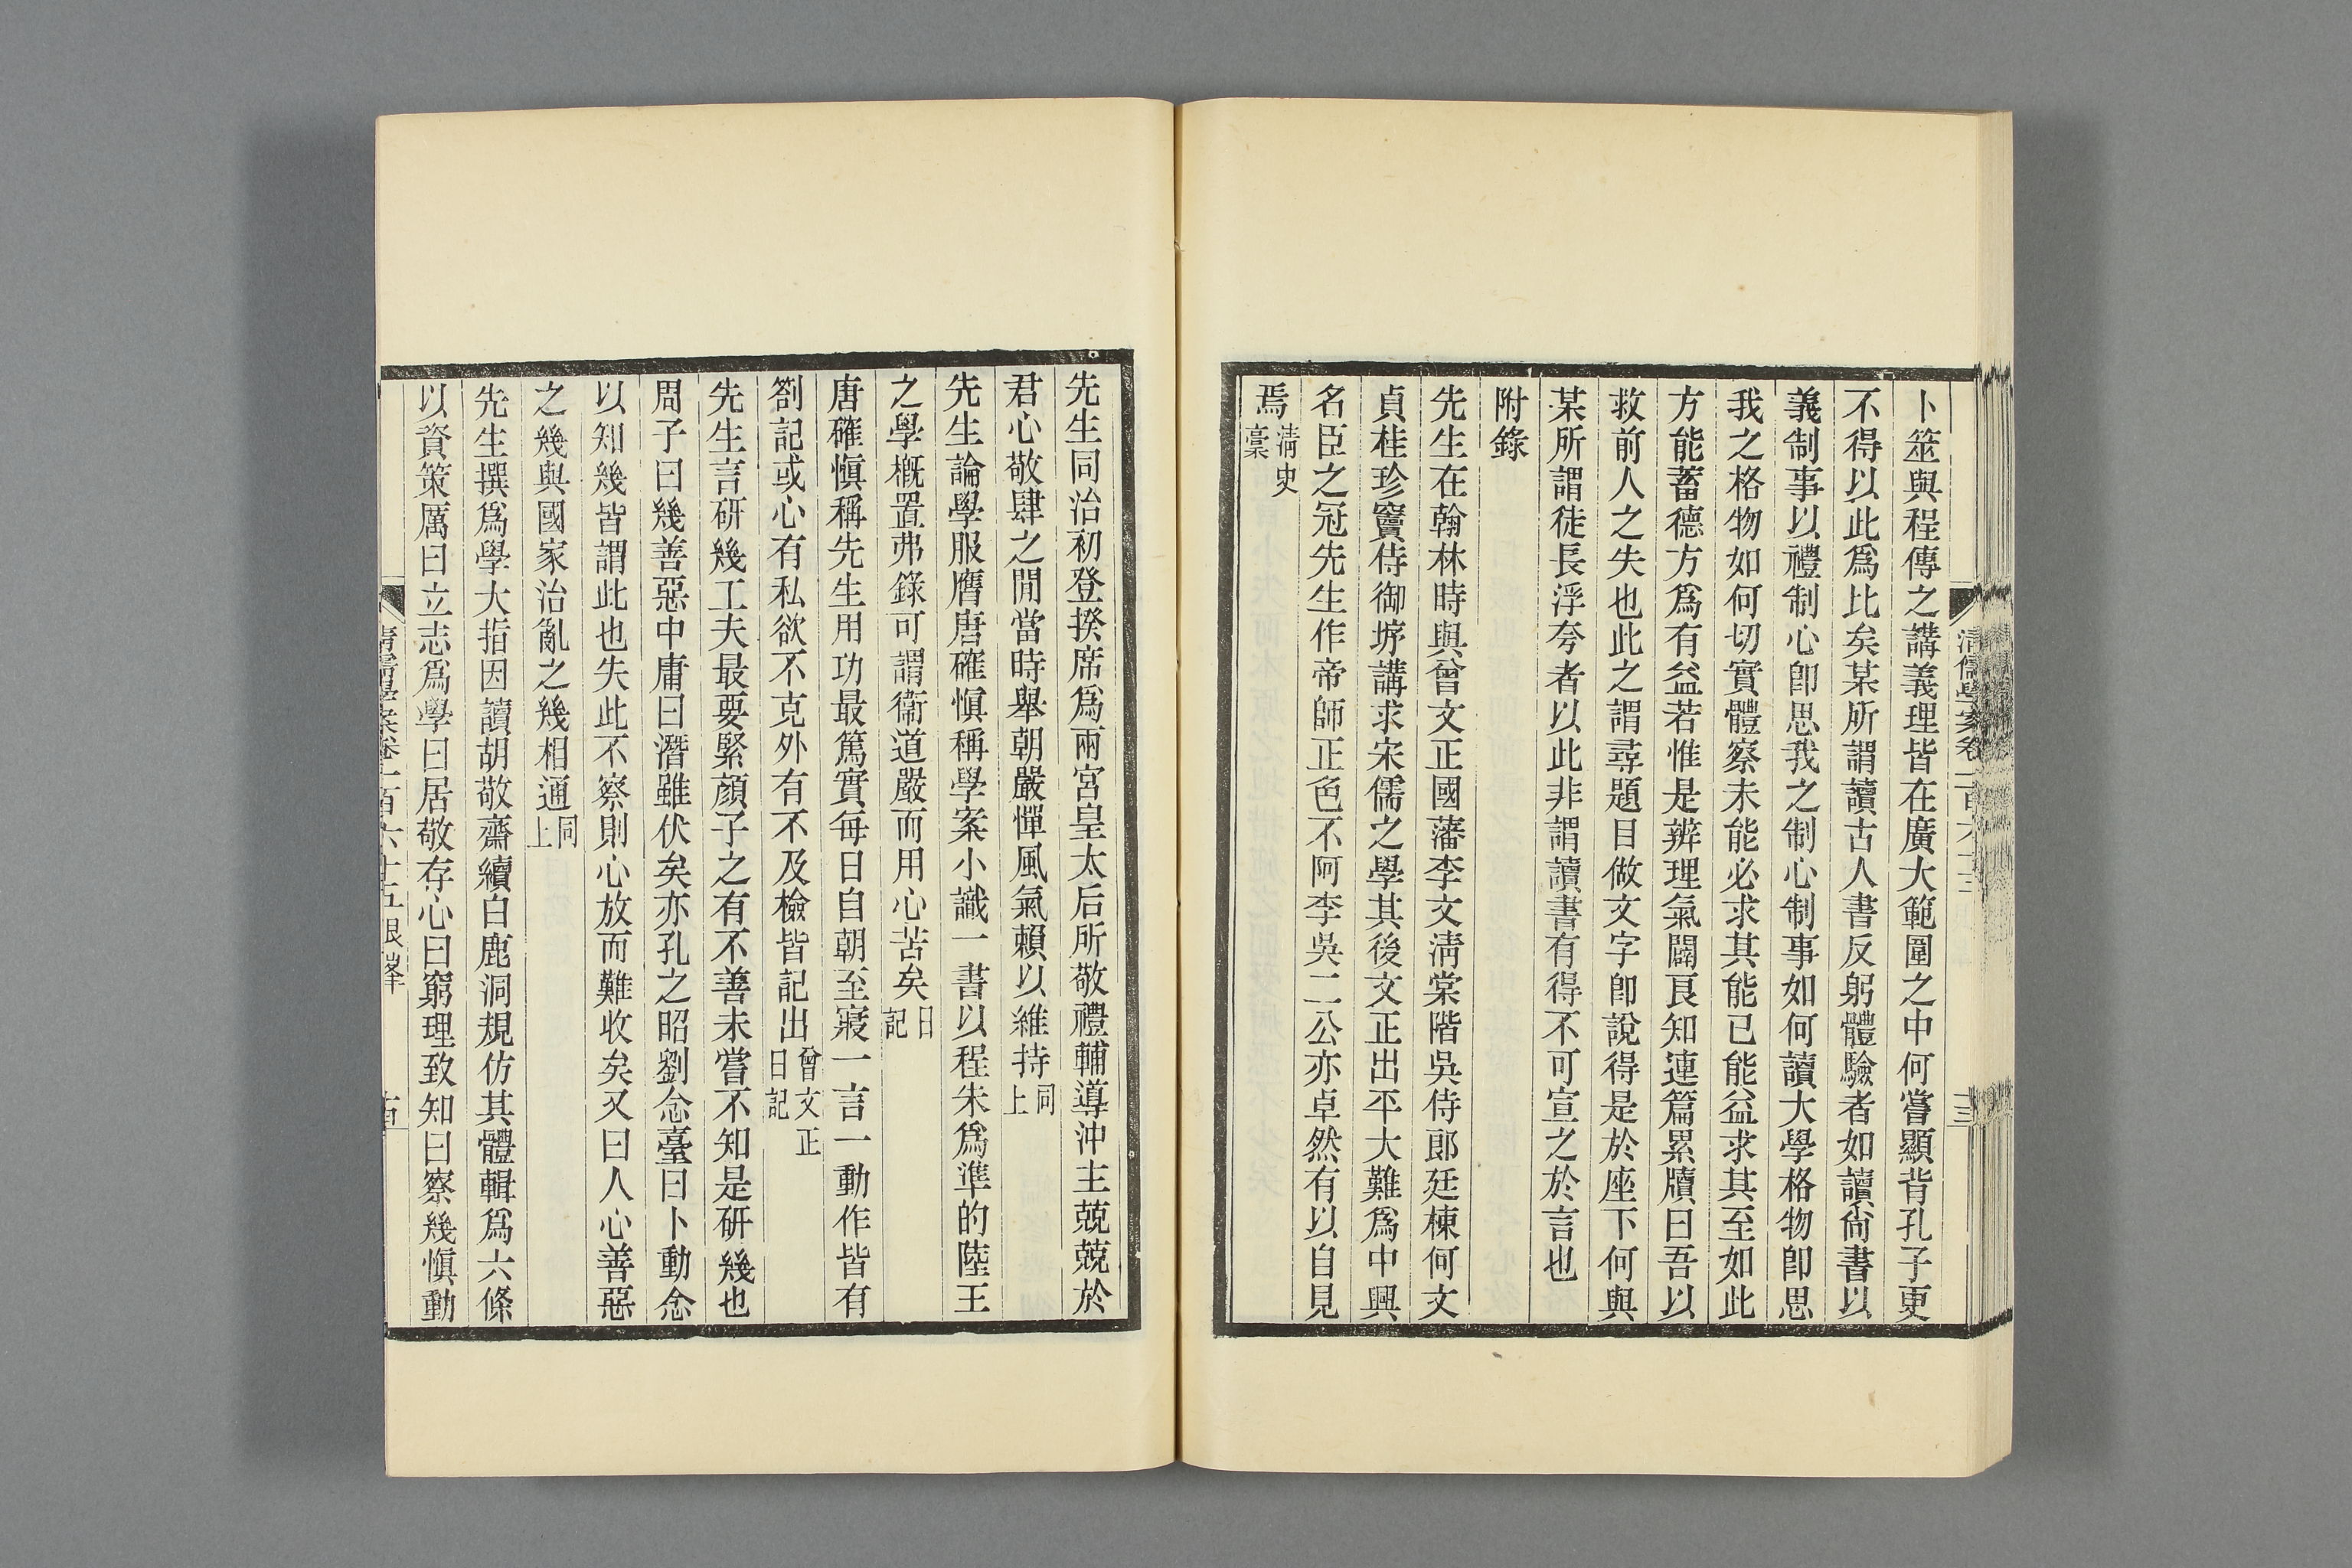 卜筮與程傳之講義理皆在廣大範圍之中何嘗顯背孔子更
不得以此爲比矣某所謂讀古人書反躬體驗者如讀尙書以
義制事以禮制心卽思我之制心制事如何讀大學格物卽思
我之格物如何切實體察未能必求其能已能益求其至如此
方能蓄德方爲有益若惟是辨理氣闢良知連篇累牘曰吾以
救前人之失也此之謂尋題目做文字卽說得是於座下何與
某所謂徒長浮夸者以此非謂讀書有得不可宣之於言也
附錄
先生在翰林時與曾文正國藩李文淸棠階吳侍郎廷棟何文
貞桂珍竇侍御垿講求宋儒之學其後文正出平大難爲中興
名臣之冠先生作帝師正色不阿李吳二公亦卓然有以自見
焉淸史
稾
淸儒學案卷一百六十五
十三
先生同治初登揆席爲兩宮皇太后所敬禮輔導沖主兢兢於
君心敬肆之閒當時舉朝嚴憚風氣賴以維持同
上
先生論學服膺唐確愼稱學案小識一書以程朱爲準的陸王
之學槪置弗錄可謂衞道嚴而用心苦矣日
記
唐確愼稱先生用功最篤實每日自朝至寢一言一動作皆有
劄記或心有私欲不克外有不及檢皆記出曾文正
日記
先生言研幾工夫最要緊顏子之有不善未嘗不知是研幾也
周子曰幾善惡中庸曰潛雖伏矣亦孔之昭劉念臺曰卜動念
以知幾皆謂此也失此不察則心放而難收矣又曰人心善惡
之幾與國家治亂之幾相通同
上
先生撰爲學大指因讀胡敬齋續白鹿洞規仿其體輯爲六條
以資策厲曰立志爲學曰居敬存心曰窮理致知曰察幾愼動
淸儒學案卷一百六十五艮峯